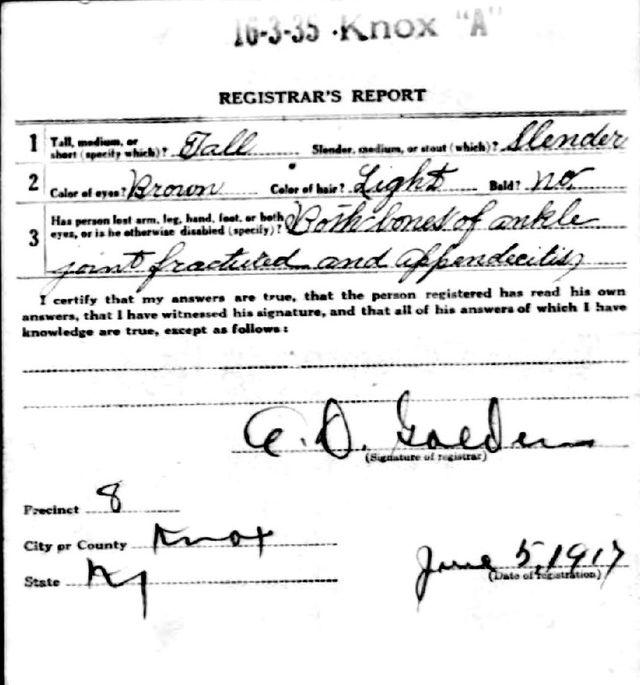 16-3-35 Knox "A"
REGISTRAR'S REPORT
1 Tall, medium, or short (specify which)? Tall Slender, medium, or stout (which)? Slender
2 Color of eyes? Brown Color of hair? Light Bald? No.
3 Has person lost arm, leg, hand, foot, or both eyes, or is he otherwise disabled (specify)? Both bones of ankle
joint fractured and appendecitis
I certify that my answers are true, that the person registered has read his own
answers, that I have witnessed his signature, and that all of his answers of which I have
knowledge are true, except as follows:
D. Golden
(Signature of registrar)
Precinct 8
City or County Knox
State Ky
June 5, 1917
(Date of registration)